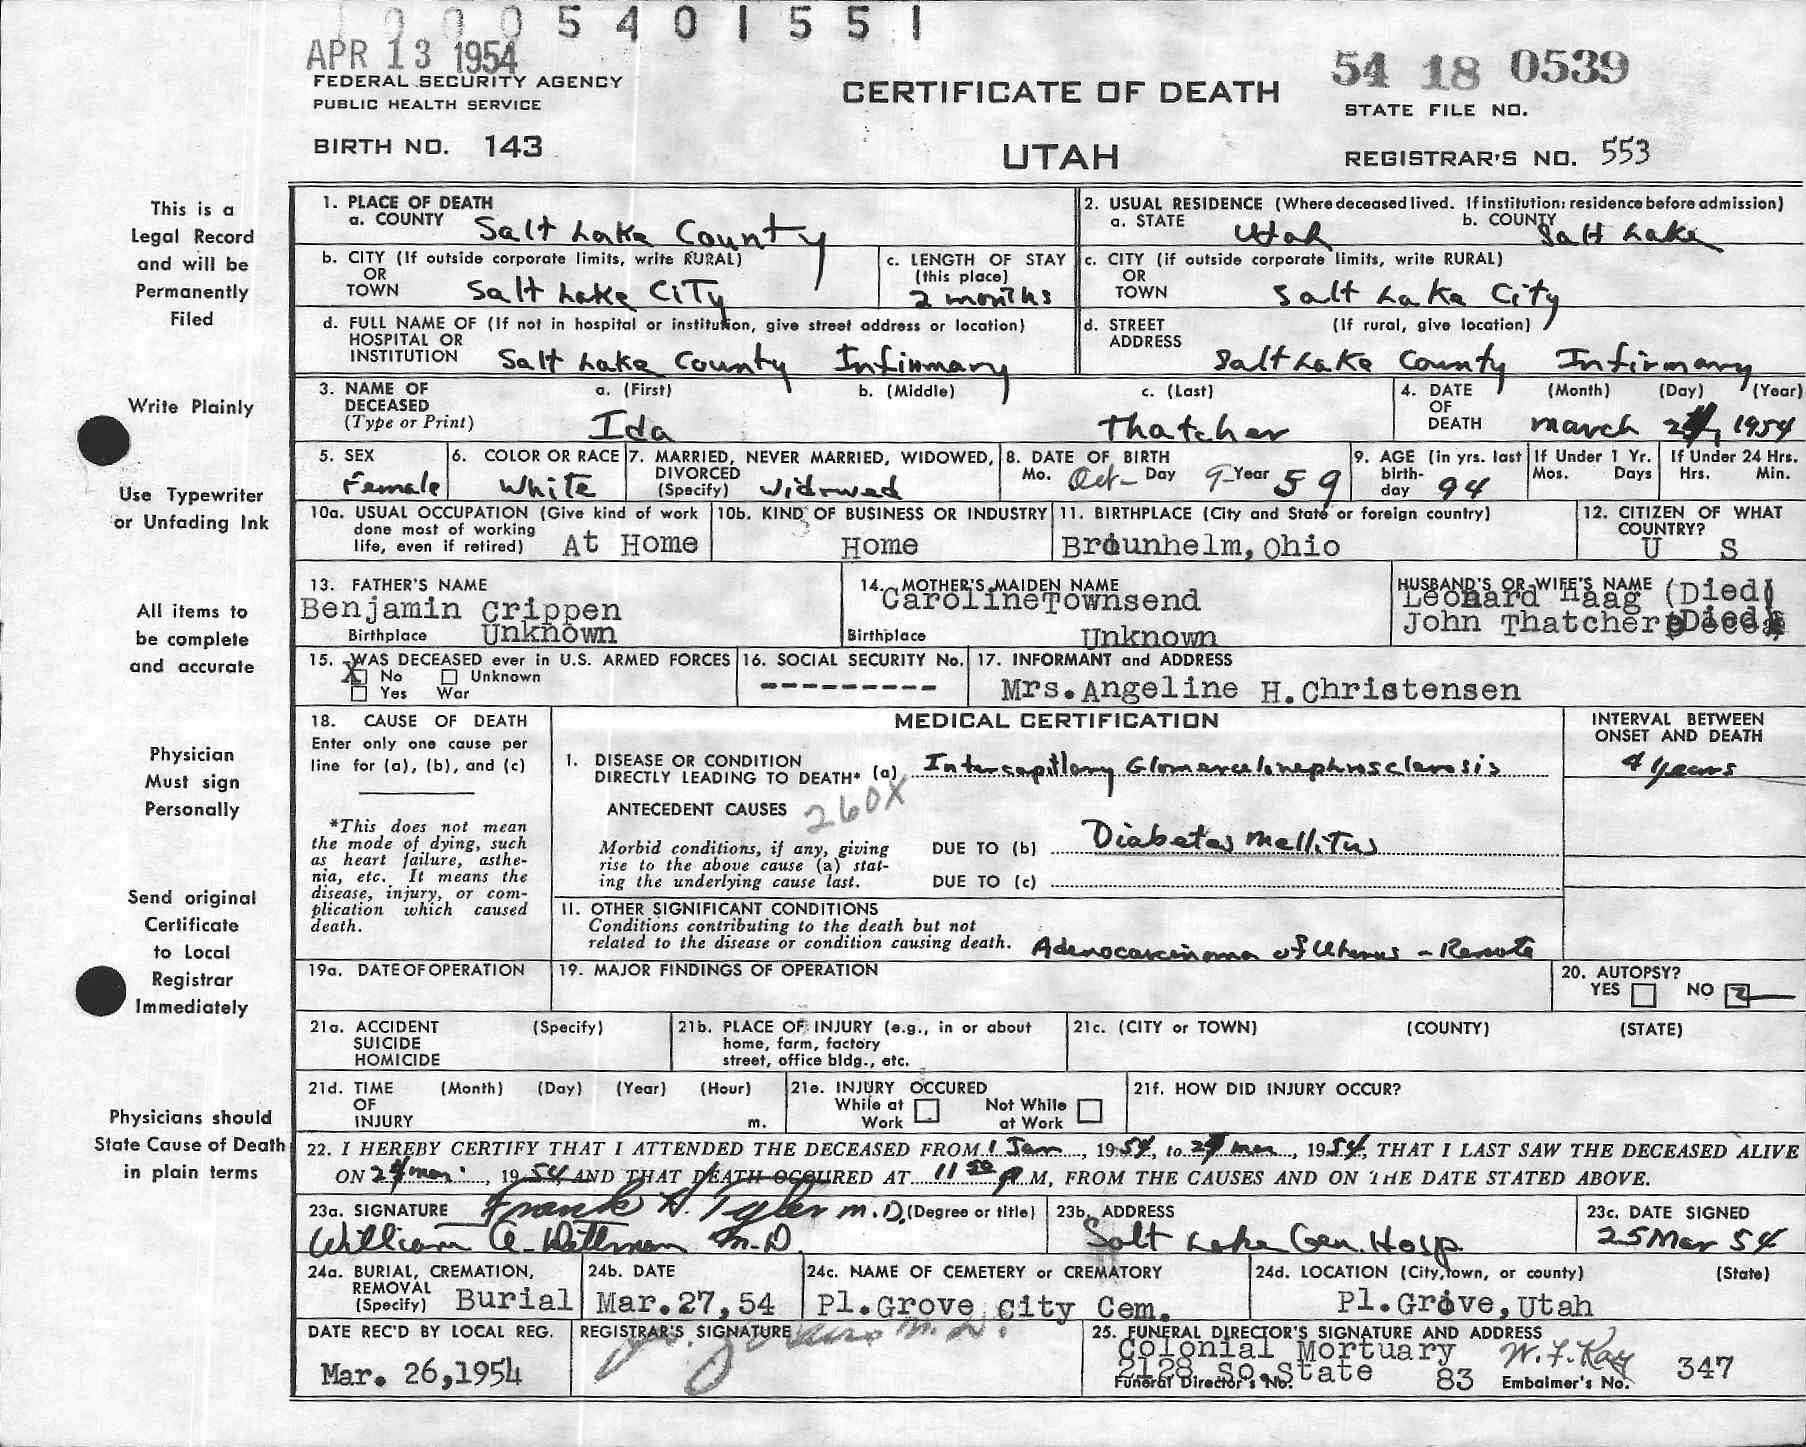 0 0 0 5 4 0 1 5 5 1
APR 13 1954
FEDERAL SECURITY AGENCY
PUBLIC HEALTH SERVICE
BIRTH NO. 143
CERTIFICATE OF DEATH
UTAH
54 18 0539
STATE FILE NO.
REGISTRAR'S NO. 553
This is a
Legal Record
and will be
Permanently
Filed
Write Plainly
Use Typewriter
or Unfading Ink
All items to
be complete
and accurate
Physician
Must sign
Personally
Send original
Certificate
to Local
Registrar
Immediately
Physicians should
State Cause of Death
in plain terms
1. PLACE OF DEATH
a. COUNTY Salt Lake County
2. USUAL RESIDENCE (Where deceased lived. If institution: residence before admission)
a. STATE Utah b. COUNTY Salt Lake
b. CITY (If outside corporate limits, write RURAL)
OR
TOWN Salt Lake City
c. LENGTH OF STAY
(this place)
2 months
c. CITY (if outside corporate limits, write RURAL)
OR
TOWN Salt Lake City
d. FULL NAME OF (If not in hospital or institution, give street address or location)
HOSPITAL OR
INSTITUTION Salt Lake County Infirmary
d. STREET (If rural, give location)
ADDRESS Salt Lake County Infirmary
3. NAME OF a. (First) b. (Middle) c. (Last)
DECEASED
(Type or Print) Ida Thatcher
4. DATE (Month) (Day) (Year)
OF
DEATH March 1954
5. SEX
Female
6. COLOR OR RACE
White
7. MARRIED, NEVER MARRIED, WIDOWED,
DIVORCED
(Specify) Widowed
8. DATE OF BIRTH
Mo. Oct- Day 9- Year 59
9. AGE (in yrs. last
birth-
day 94
If Under 1 Yr.
Mos. Days
If Under 24 Hrs.
Hrs. Min.
10a. USUAL OCCUPATION (Give kind of work
done most of working
life, even if retired) At Home
10b. KIND OF BUSINESS OR INDUSTRY
Home
11. BIRTHPLACE (City and State or foreign country)
Braunhelm, Ohio
12. CITIZEN OF WHAT
COUNTRY?
U S
13. FATHER'S NAME
Benjamin Crippen
Birthplace Unknown
14. MOTHER'S MAIDEN NAME
Caroline Townsend
Birthplace Unknown
HUSBAND'S OR WIFE'S NAME
Leonard Haag (Died)
John Thatcher
15. WAS DECEASED ever in U.S. ARMED FORCES
X No Unknown
Yes War
16. SOCIAL SECURITY No.
---------
17. INFORMANT and ADDRESS
Mrs. Angeline H. Christensen
18. CAUSE OF DEATH
Enter only one cause per
line for (a), (b), and (c)
*This does not mean
the mode of dying, such
as heart failure, asthe-
nia, etc. It means the
disease, injury, or com-
plication which caused
death.
MEDICAL CERTIFICATION
INTERVAL BETWEEN
ONSET AND DEATH
I. DISEASE OR CONDITION
DIRECTLY LEADING TO DEATH* (a) Intercapillary Glomerulonephrosclerosis
4 years
ANTECEDENT CAUSES 260X
Morbid conditions, if any, giving
rise to the above cause (a) stat-
ing the underlying cause last.
DUE TO (b) Diabetes Mellitus
DUE TO (c)
II. OTHER SIGNIFICANT CONDITIONS
Conditions contributing to the death but not
related to the disease or condition causing death. Adenocarcinoma of Uterus - Remote
19a. DATE OF OPERATION
19. MAJOR FINDINGS OF OPERATION
20. AUTOPSY?
YES NO
21a. ACCIDENT (Specify)
SUICIDE
HOMICIDE
21b. PLACE OF INJURY (e.g., in or about
home, farm, factory
street, office bldg., etc.
21c. (CITY or TOWN) (COUNTY) (STATE)
21d. TIME (Month) (Day) (Year) (Hour)
OF
INJURY m.
21e. INJURY OCCURED
While at Work
Not While at Work
21f. HOW DID INJURY OCCUR?
22. I HEREBY CERTIFY THAT I ATTENDED THE DECEASED FROM 1 Jan, 1954, to Mar, 1954, THAT I LAST SAW THE DECEASED ALIVE
ON Mar, 1954 AND THAT DEATH OCCURED AT 11 50 M, FROM THE CAUSES AND ON THE DATE STATED ABOVE.
23a. SIGNATURE Frank H. Tyler M.D. (Degree or title)
William A. M.D.
23b. ADDRESS
Salt Lake Gen. Hosp
23c. DATE SIGNED
25 Mar 54
24a. BURIAL, CREMATION,
REMOVAL
(Specify) Burial
24b. DATE
Mar. 27, 54
24c. NAME OF CEMETERY or CREMATORY
Pl. Grove City Cem.
24d. LOCATION (City, town, or county) (State)
Pl. Grove, Utah
DATE REC'D BY LOCAL REG.
Mar. 26, 1954
REGISTRAR'S SIGNATURE
M. D.
25. FUNERAL DIRECTOR'S SIGNATURE AND ADDRESS
Colonial Mortuary W. F. Kay
2128 So. State
Funeral Director's No. 83 Embalmer's No. 347